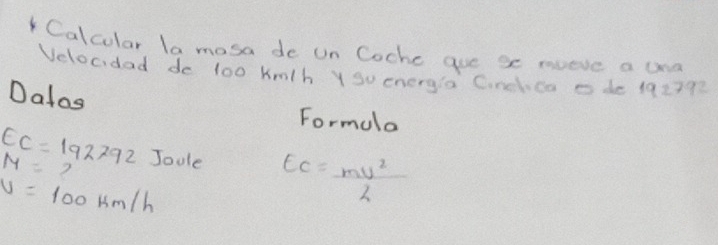 Calcular la masa de un Coche que se mueve a una
Velocidad de 100 Km/h y su energía Cinetica es de 192792
Datos
Formula
EC = 192792 Joule
M = ?
V = 100 Km/h
Ec = mv²
2